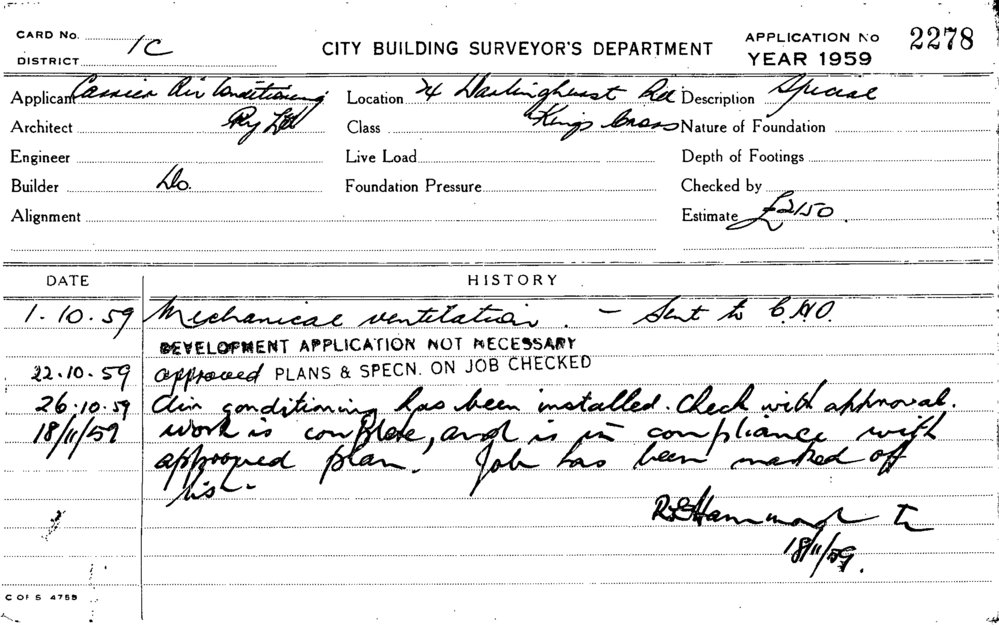 CARD No. 1C
DISTRICT
CITY BUILDING SURVEYOR'S DEPARTMENT
APPLICATION No 2278
YEAR 1959
Applicant Carrier Air Conditioning Pty Ltd
Location 24 Darlinghurst Rd Kings Cross
Description Special
Architect
Class
Nature of Foundation
Engineer
Live Load
Depth of Footings
Builder Do.
Foundation Pressure
Checked by
Alignment
Estimate £2150.
DATE HISTORY
1-10-59 Mechanical ventilation. - Sent to C.H.O.
DEVELOPMENT APPLICATION NOT NECESSARY
22-10-59 approved PLANS & SPECN. ON JOB CHECKED
26-10-59 Air conditioning has been installed. Check with approval.
18/11/59 work is complete, and is in compliance with
approved plan. Job has been marked off
list.
18/11/59.
C OF S 4755